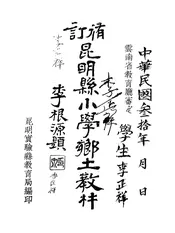 中華民國叁拾年 月 日
雲南省教育廳審定
學生李正祥
李正祥
修訂昆明縣小學鄉土教材
李正祥
李根源題
昆明實驗縣教育局編印